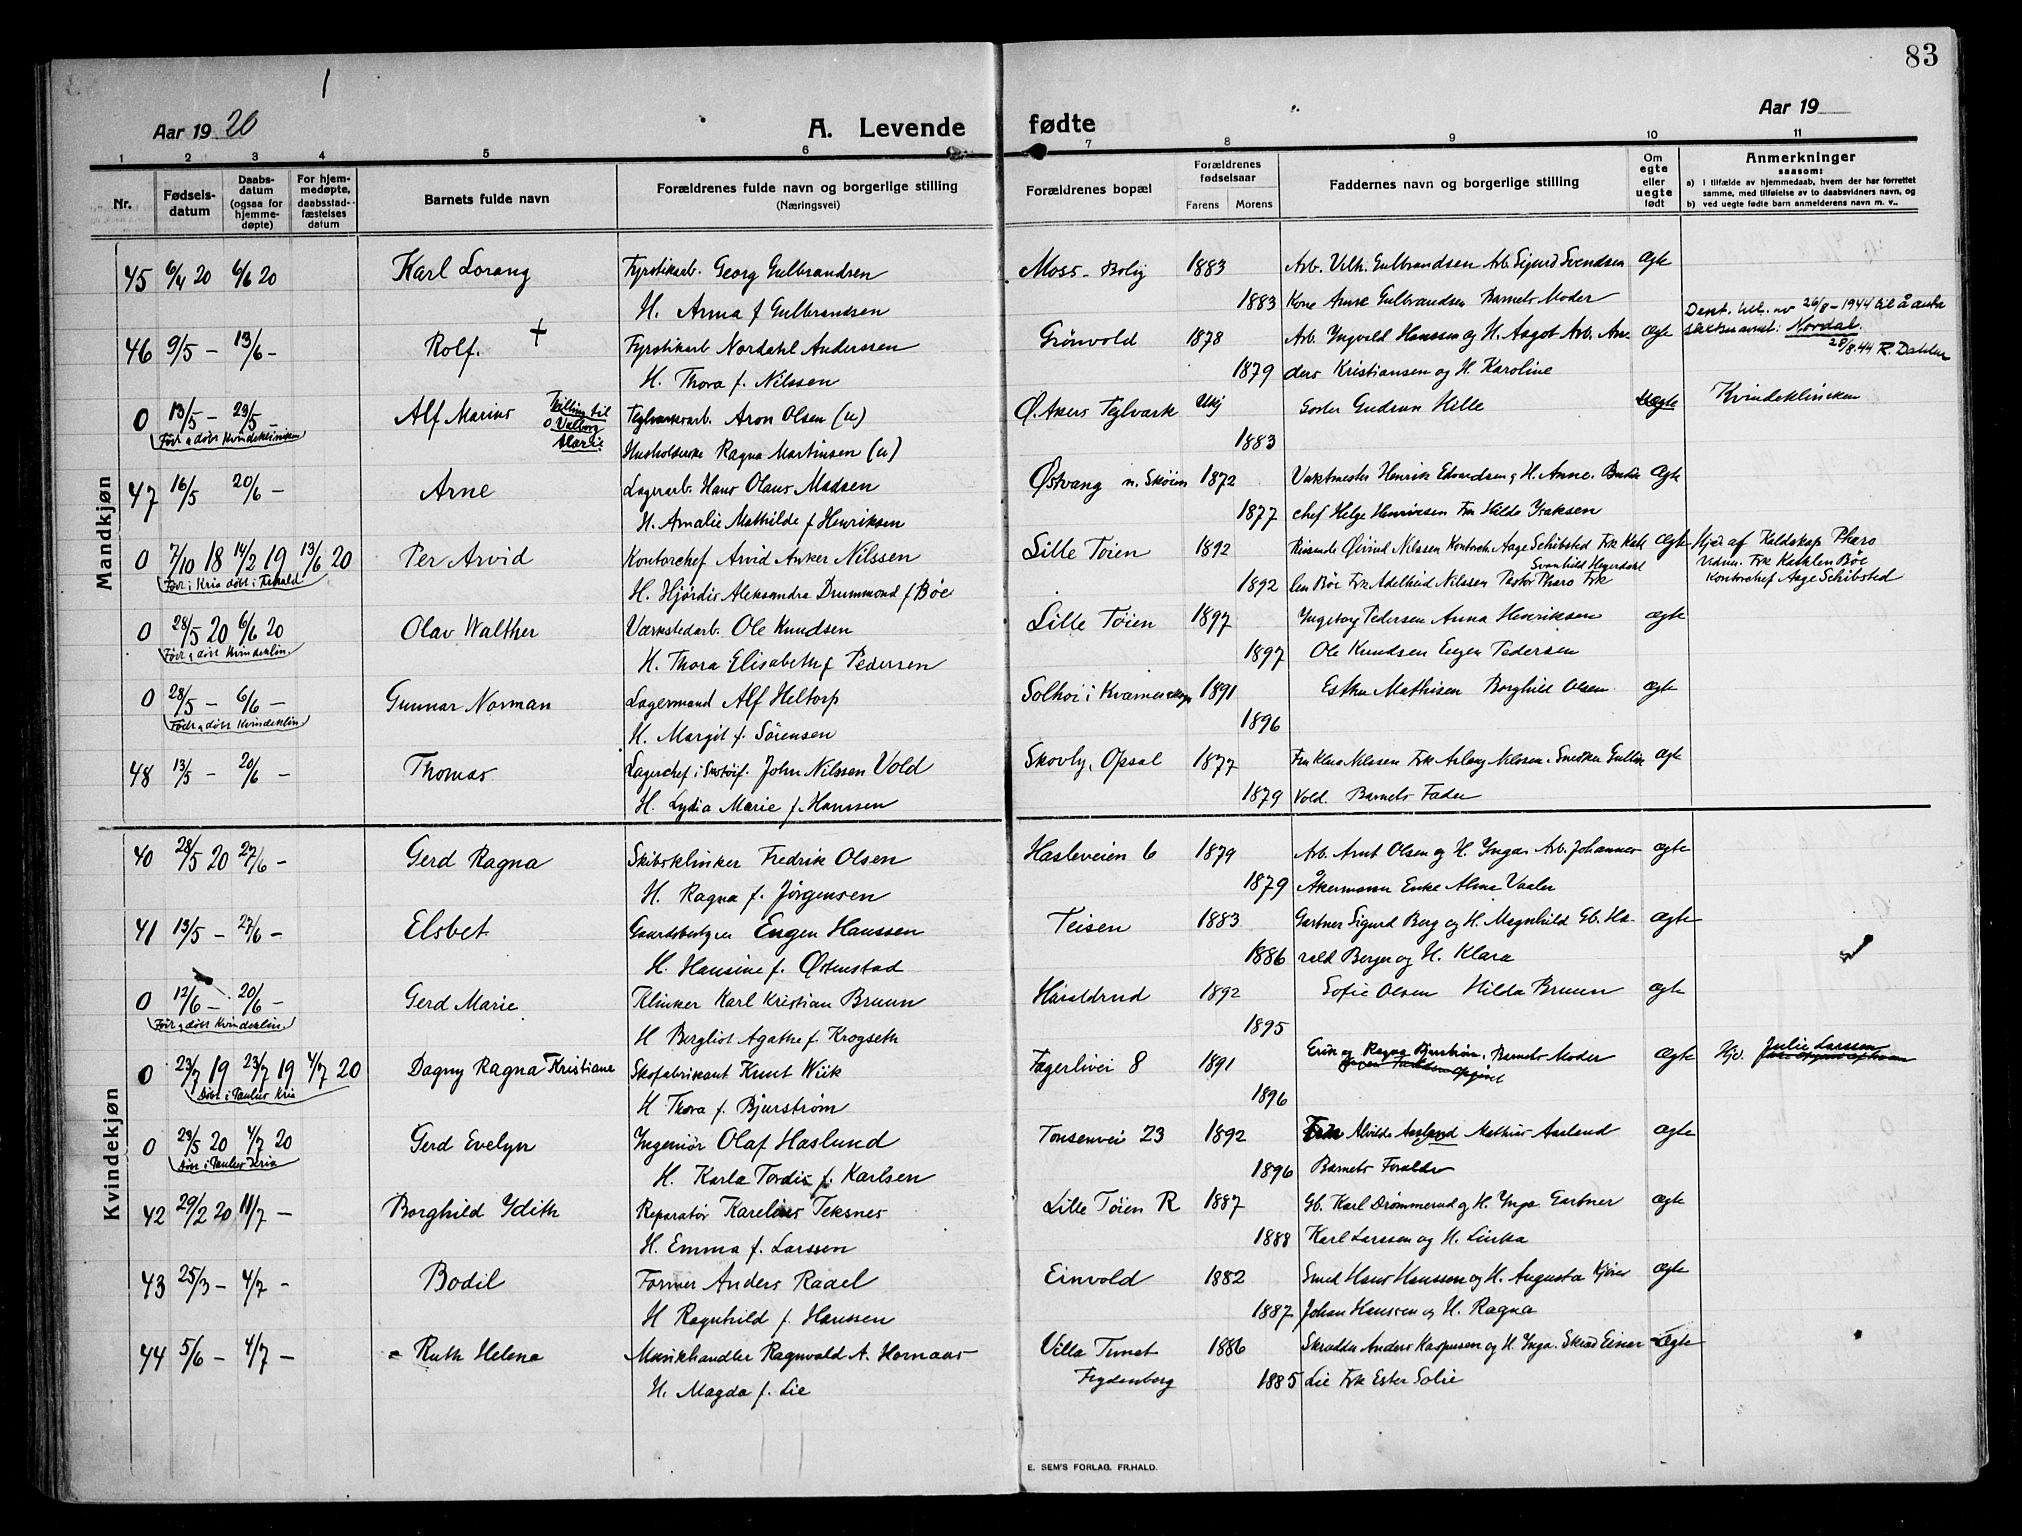 83
Aar 1920
A. Levende fødte
Aar 19
1 2 3 4 5 6 7 8 9 10 11
Nr.
Fødsels-datum
Daabs-datum (ogsaa for hjemme-døpte)
For hjem-medøpte, daabsstad-fæstelses datum
Barnets fulde navn
Forældrenes fulde navn og borgerlige stilling
(Næringsvei)
Forældrenes bopæl
Forældrenes fødselsaar
Farens Morens
Faddernes navn og borgerlige stilling
Om egte eller uegte født
Anmerkninger
saasom:
a) i tilfælde av hjemmedaab, hvem der har forrettet samme, med tilføielse av to daabsvidners navn, og
b) ved uegte fødte barn anmelderens navn m. v..
Mandkjøn
45 6/4 20 6/6 20 Karl Lorang Fyrstikarb. Georg Gulbrandsen Moss- Bolig 1883 Arb. Vilh. Gulbrandsen Arb. Sigurd Svendsen Ægte
H. Anna f Gulbrandsen 1883 Kone Anna Gulbrandsen Barnets Moder
46 9/5 - 13/6 - Rolf. + Fyrstikarb Nordahl Anderssen Grønvold 1878 Arb. Yngvald Hanssen og H. Aagot Arb. An- Ægte
Dept. till. av 26/8-1944 til å anta
slektsnavnet: Nordal.
28/8.44 R. Dahler
H. Thora f. Nilssen 1879 ders Kristiansen og H. Karoline
0 13/5 - 23/5 - Alf Marius Tvilling til o Valborg Marie Teglverksarb. Aron Olsen (u) Ø. Akers Teglverk Ukj Søster Gudrun Hille Uægte Kvindeklinicken
Født og døbt Kvindeklinicken
Husholderske Ragna Martinsen (u) 1883
47 16/5 20/6 - Arne Lagerarb. Hans Olaus Madsen Østvang n. Skøien 1872 Vaktmester Henrik Edvardsen og H. Anne. Ægte
H. Amalie Mathilde f Henriksen 1877 chef Helge Henriksen Frk Hilda Isaksen
0 7/10 18 14/2 19 13/6 20 Per Arvid Kontorchef Arvid Anker Nilssen Lille Tøien 1892 Reisende Øivind Nilssen Kontorch. Aage Schibsted Frk Kath Ægte Hjd. af Kaldskap. Pharo
Født i Kria døbt i Frhald
Svanhild Hegerdahl
Vidner. Frk Kathlen Bøe
H. Hjørdis Aleksandra Drummond f Bøe 1892 len Bøe Frk Adelheid Nilssen Pastor Pharo Frk Kontorchef Aage Schibsted
0 28/5 20 6/6 20 Olav Walther Værkstedarb. Ole Knudsen Lille Tøien 1897 Ingeborg Pedersen Anna Henriksen Ægte
Født og døbt Kvindeklin.
H. Thora Elisabeth f Pedersen 1897 Ole Knudsen Eugen Pedersen
0 28/5 - 6/6 - Gunnar Norman Lagermand Alf Heltorp Solhøi i 1891 Esther Mathisen Borghild Olsen Ægte
Født og døbt Kvindeklin.
H. Margit f. Sørensen 1896
48 13/5 - 20/6 - Thomas Lagerchef i Skotøif. John Nilssen Vold Skovly, Opsal 1877 Fru Klara Nilssen Frk Aslaug Nilssen. Snedker Gullin Ægte
H. Lydia Marie f. Hanssen 1879 Vold. Barnets Fader
Kvindekjøn
40 28/5 20 27/6 - Gerd Ragna Skibsklinker Fredrik Olsen Hasleveien 6 1879 Arb. Arnt Olsen og H. Ynga. Arb. Johannes Ægte
H. Ragna f. Jørgensen 1879 Åkermann Enke Alma Vaaler
41 13/5 - 27/6 - Elsbet Gaardsbestyrer Eugen Hanssen Teisen 1883 Gartner Sigurd Berg og H. Magnhild Gb. Ha- Ægte
H. Hansine f. Østenstad 1886 rald Berger og H. Klara
0 12/6 - 20/6 - Gerd Marie Klinker Karl Kristian Bruun Haraldrud 1892 Sofie Olsen Hilda Bruun Ægte
Født og døbt Kvindeklin.
H Bergliot Agathe f Krogseth 1895
0 23/7 19 23/7 19 4/7 20 Dagny Ragna Kristiane Skofabrikant Knut Wiik Fagerlivei 8 1891 Erik og Ragna Bjurstrøm. Barnets Moder Ægte Hjd. Julie Larssen
Døbt i Paulus Kria
H Thora f. Bjurstrøm 1896
0 29/5 20 4/7 20 Gerd Evelyn Ingeniør Olaf Haslund Tonsenvei 23 1892 Alvilde Aarland Mathias Aarland Ægte
Døbt i Paulus Kria
H. Karla Tordis f. Karlsen 1896 Barnets Forældre
42 29/2 20 11/7 - Borghild Ydith Reparatør Karelius Teksnes Lille Tøien R 1887 Gb. Karl Drømmerud og H. Ynga Gartner Ægte
H. Emma f. Larssen 1888 Karl Larssen og H. Linka
43 25/3 - 4/7 - Bodil Former Anders Radel Einvold 1882 Smed Hans Hanssen og H. Augusta Kjører Ægte
H Ragnhild f. Hanssen 1887 Johan Hanssen og H. Ragna
44 5/6 - 4/7 - Ruth Helene Musikhandler Ragnvald A. Hornaas Villa Tunet 1886 Skrædder Anders Kaspersen og H. Ynga. Einar Ægte
H. Magda f. Lie Frydenborg 1885 Lie Frk Ester Solie
E. SEM'S FORLAG. FR.HALD.